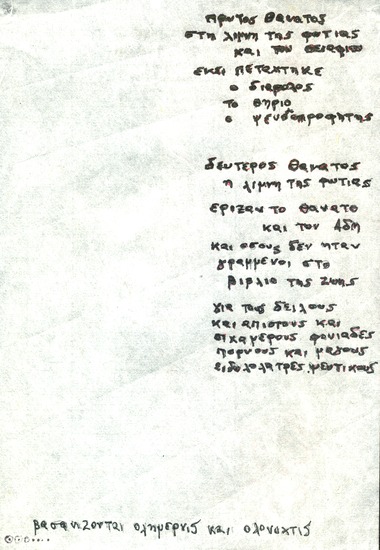 πρωτος θανατος
στη λιμνη της φωτιας
και του θειαφιου
εκει πεταχτηκε
ο διαβολος
το θηριο
ο ψευδοπροφητης
δευτερος θανατος
η λιμνη της φωτιας
εριξαν το θανατο
και τον Αδη
και οσους δεν ηταν
γραμμενοι στο
βιβλιο της ζωης
για τους δειλους
και απιστους και
σιχαμερους φονιαδες
πορνους και μαγους
ειδωλολατρες ψευτικους
βασανιζονται οлημερνις και ολονυχτις